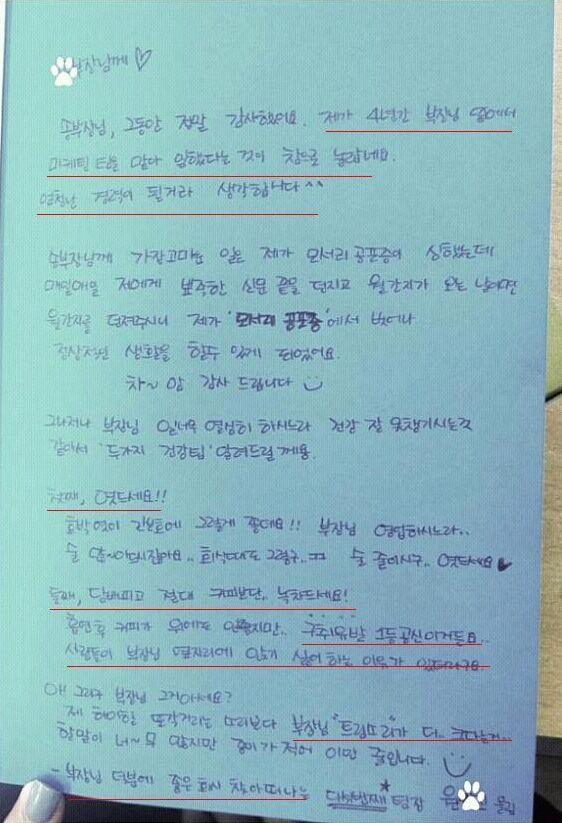 부장님께 ♡
송부장님, 그동안 정말 감사했어요. 제가 4년간 부장님 옆에서
마케팅 팀을 맡아 일했다는 것이 참으로 놀랍네요.
엄청난 경력이 될거라 생각합니다^^
송부장님께 가장고마운 일은 제가 모서리 공포증이 심했는데
매일매일 저에게 뾰족한 신문 끝을 던지고 월간지가 오는 날이면
월간지를 던져주시니 제가 '모서리 공포증'에서 벗어나
정상적인 생활을 할수 있게 되었어요.
차~암 감사 드립니다
그나저나 부장님 일너무 열심히 하시느라 건강 잘 못챙기시는것
같아서 '두가지 건강팁' 알려드릴께용.
첫째, 엿드세요!!
호박엿이 간보호에 그렇게 좋대요!! 부장님 영업하시느라..
술 많~이드시잖아요.. 회식때도 그렇구..ㅠㅠ 술 줄이시구.. 엿드세요♥
둘째, 담배피고 절대 커피보단.. 녹차드세요!
흡연후 커피가 위에도 안좋지만.. 구취유발 1등공신이거든요..
사람들이 부장님 옆자리에 앉기 싫어 하는 이유가 있더라구요.
아! 그리구 부장님 그거아세요?
제 하이힐 또각거리는 소리보다 부장님 "트림소리"가 더.. 크다는거..
할말이 너~무 많지만 종이가 적어 이만 줄입니다.
- 부장님 덕분에 좋은 회사 찾아떠나는 다섯번째* 팀장 윤 올림